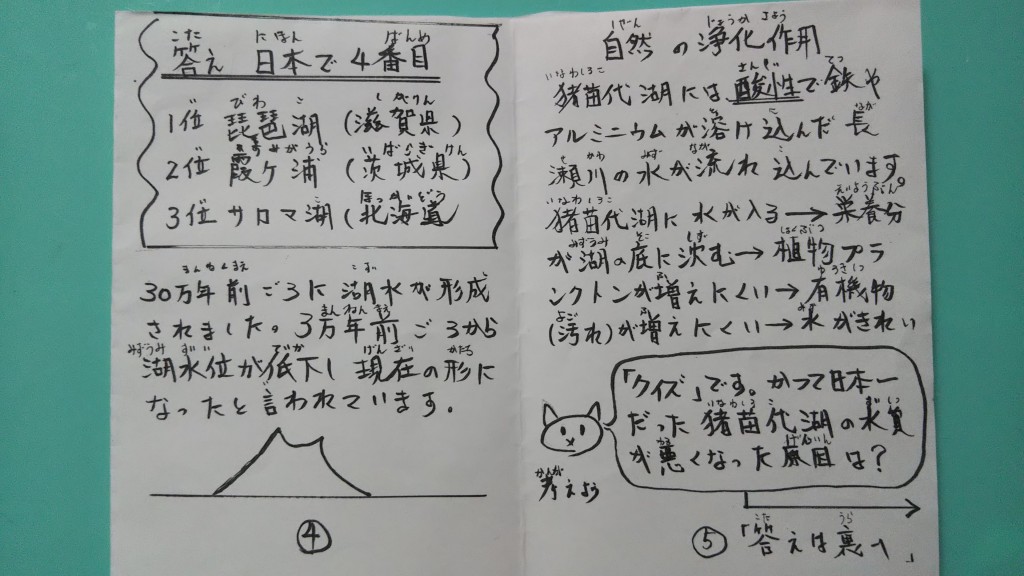 答え 日本で4番目
1位 琵琶湖 (滋賀県)
2位 霞ヶ浦 (茨城県)
3位 サロマ湖 (北海道
30万年前ごろに湖水が形成
されました。3万年前ごろから
湖水位が低下し現在の形に
なったと言われています。
④
自然の浄化作用
猪苗代湖には酸性で鉄や
アルミニウムが溶け込んだ長
瀬川の水が流れ込んでいます。
猪苗代湖に水が入る→栄養分
が湖の底に沈む→植物プラ
ンクトンが増えにくい→有機物
(汚れ)が増えにくい→水がきれい
「クイズ」です。かつて日本一
だった猪苗代湖の水質
が悪くなった原因は?
考えよう
⑤「答えは裏へ」